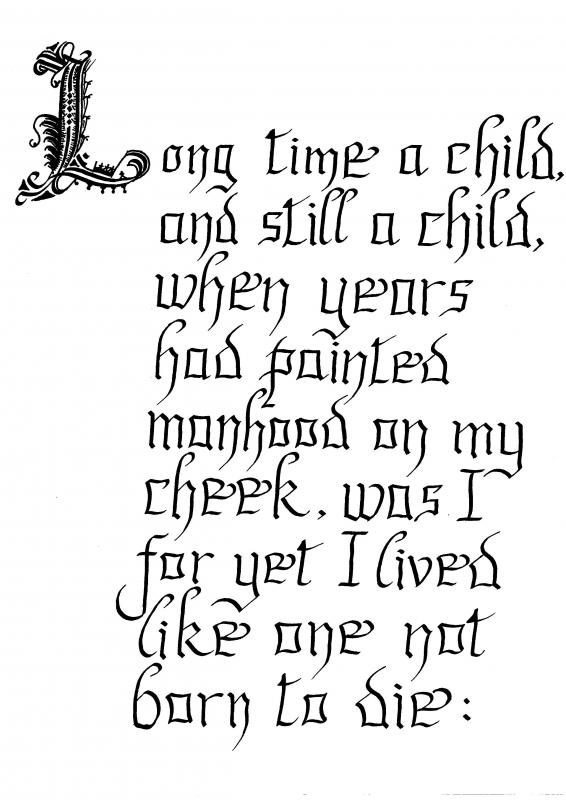 Long time a child,
and still a child,
when years
had painted
manhood on my
cheek, was I
for yet I lived
like one not
born to die: